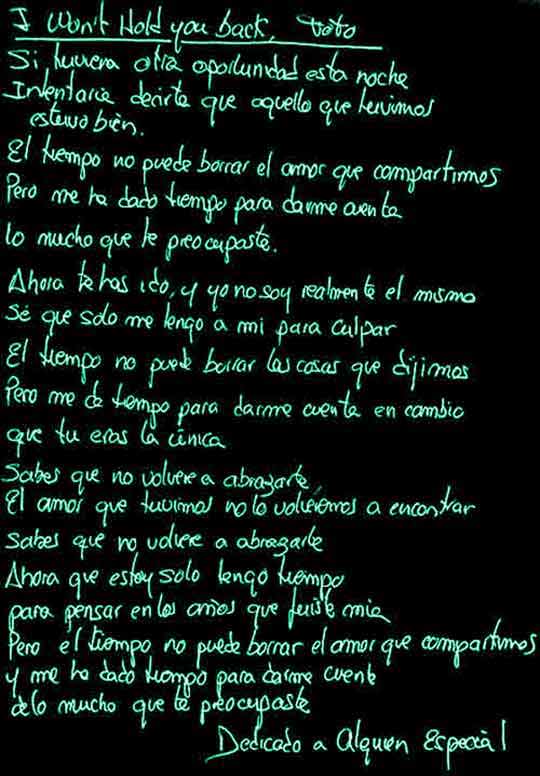 I Won't Hold you back, Toto
Si tuviera otra oportunidad esta noche
Intentaria decirte que aquello que tuvimos
estuvo bien.
El tiempo no puede borrar el amor que compartimos
Pero me ha dado tiempo para darme cuenta
lo mucho que te preocupaste.
Ahora te has ido, y yo no soy realmente el mismo
Sé que solo me tengo a mi para culpar
El tiempo no puede borrar las cosas que dijimos
Pero me da tiempo para darme cuenta en cambio
que tu eras la única
Sabes que no volvere a abrazarte
El amor que tuvimos no lo volveremos a encontrar
Sabes que no volvere a abrazarte
Ahora que estoy solo tengo tiempo
para pensar en los años que fuiste mia
Pero el tiempo no puede borrar el amor que compartimos
y me ha dado tiempo para darme cuenta
de lo mucho que te preocupaste
Dedicado a Alguien Especial